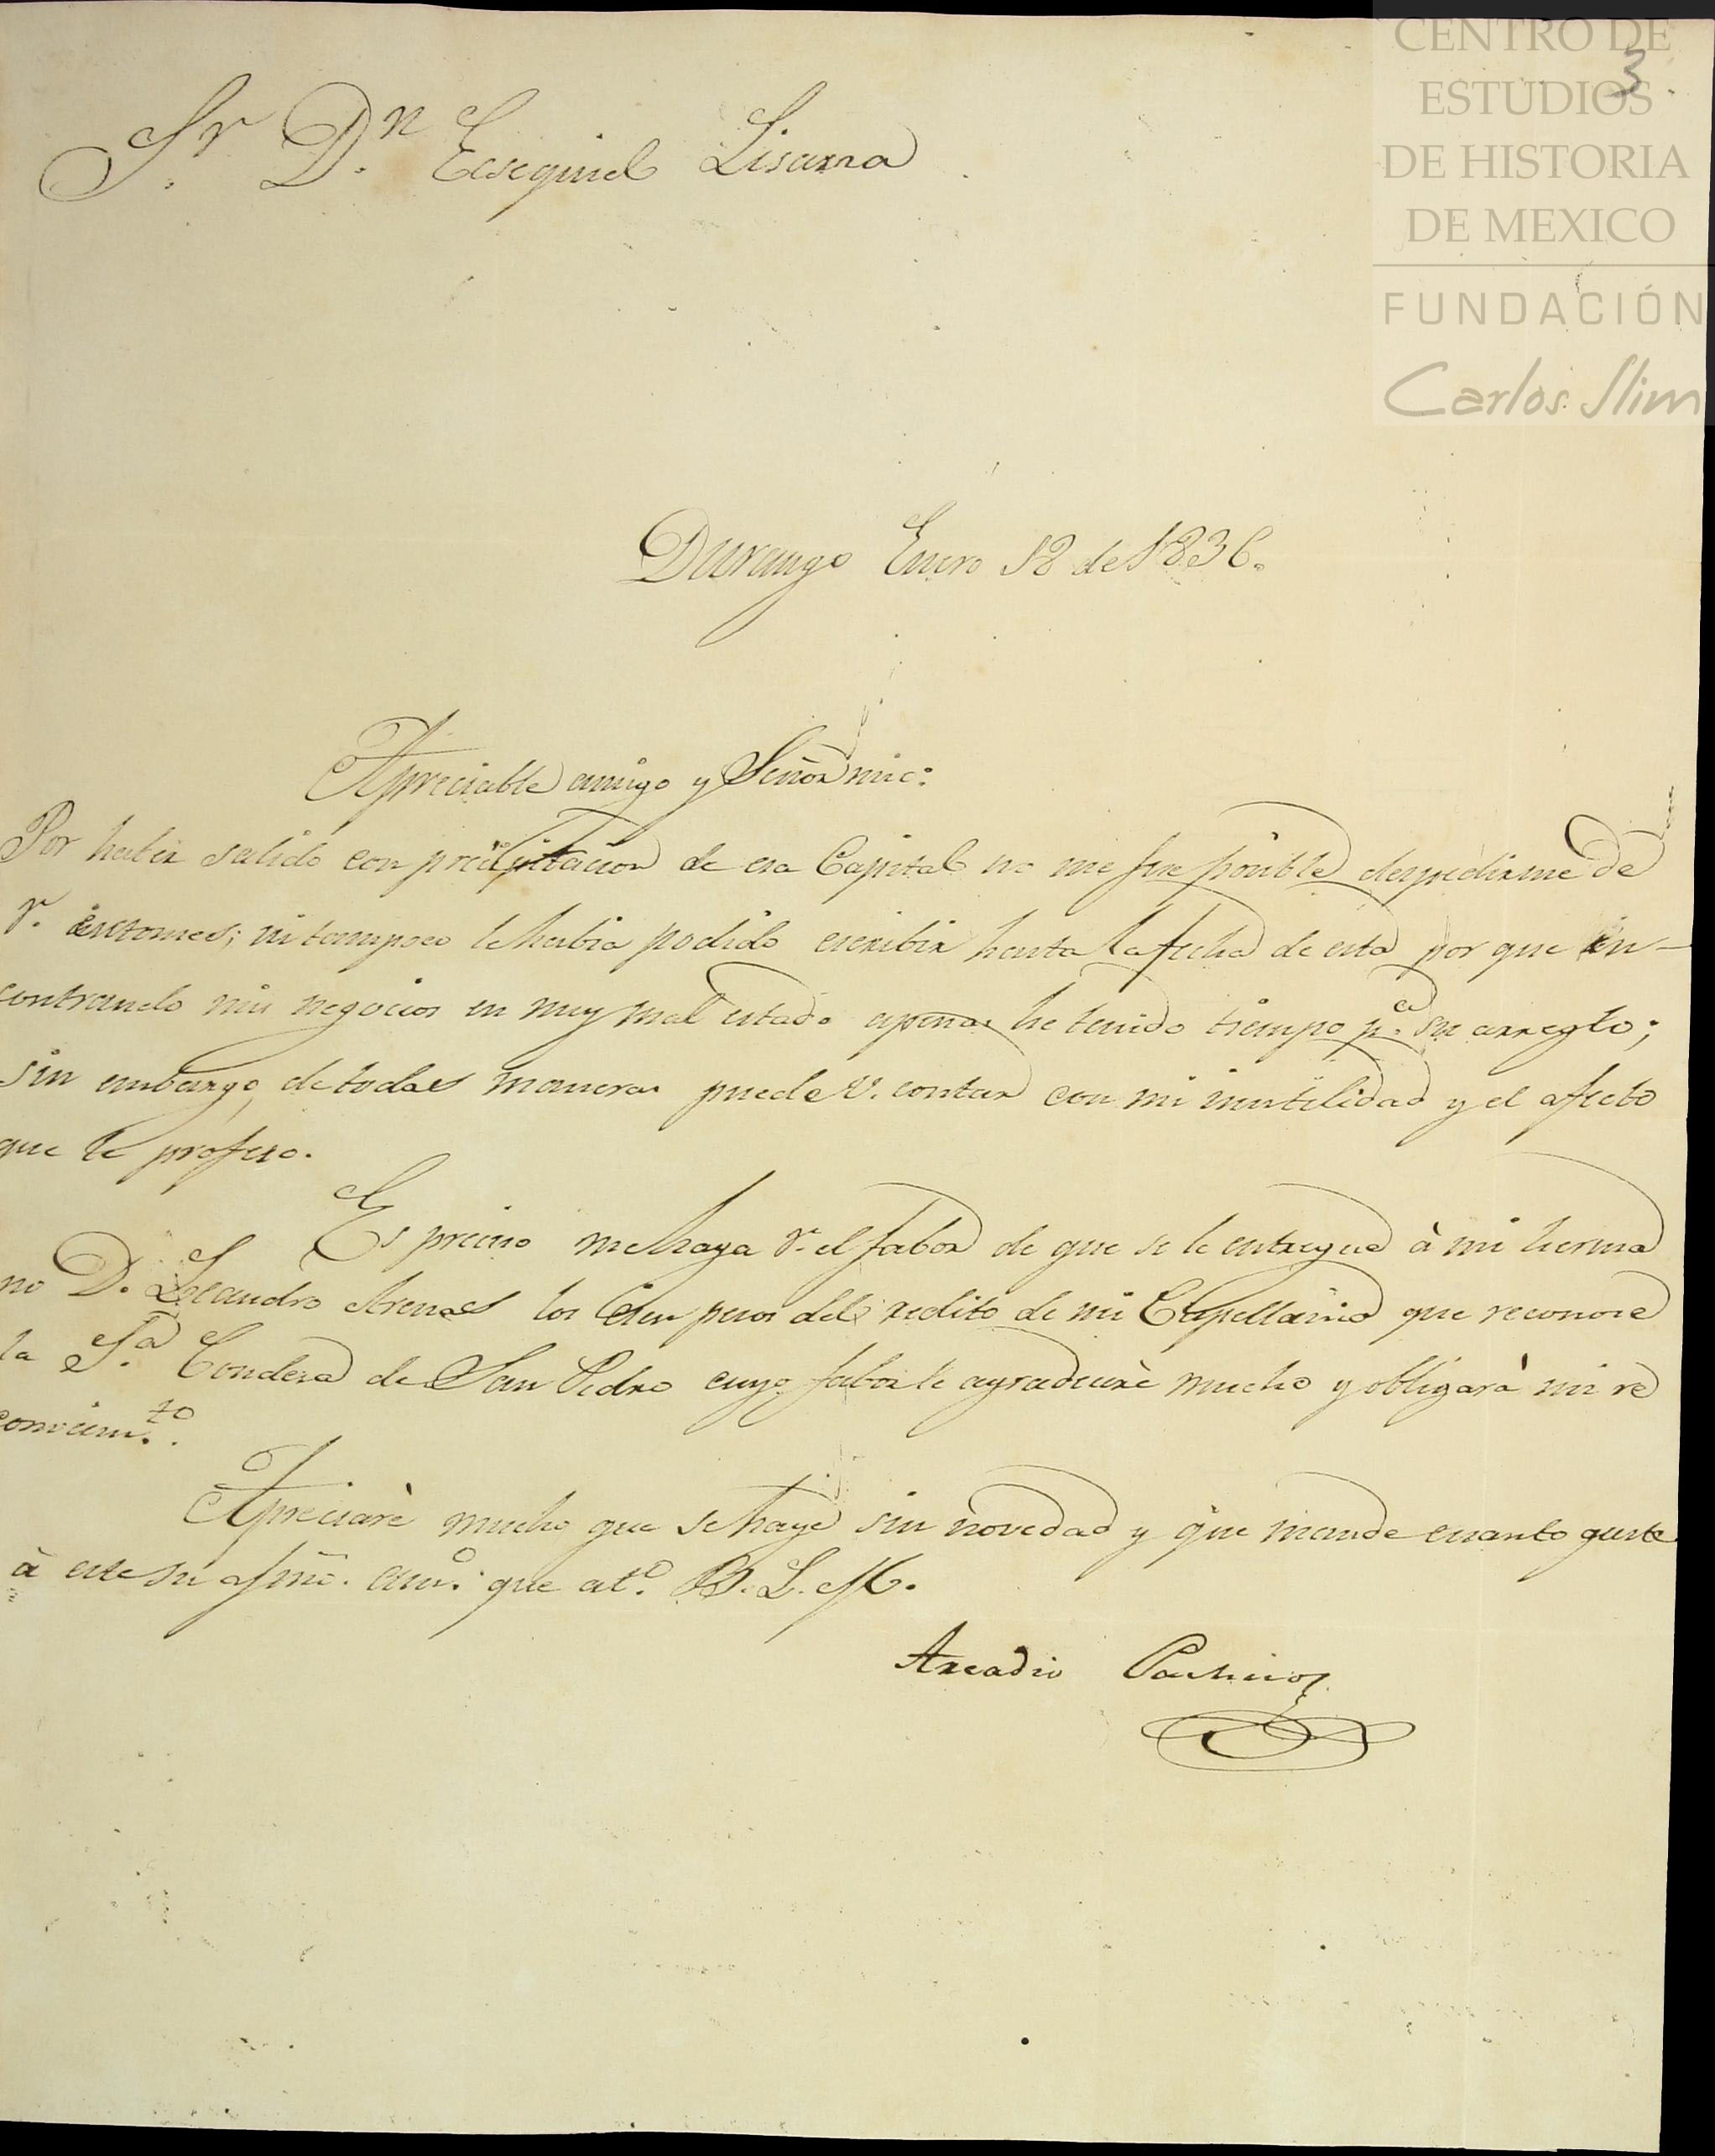 CENTRO DE
ESTUDIOS
DE HISTORIA
DE MEXICO
FUNDACIÓN
Carlos Slim
3
Sr. Dn. Esequiel Lisarra
Durango Enero 18 de 1836.
Apreciable amigo y Señor mio:
Por haber salido con precipitacion de esa Capital no me fue posible despedirme de
V. entonces; ni tampoco le habia podido escribir hasta la fecha de esta por que en-
contrando mis negocios en muy mal estado apenas he tenido tiempo pa. su arreglo;
sin embargo, de todas maneras puede V. contar con mi inutilidad y el afecto
que le profeso.
Es preciso me haga V. el fabor de que se le entregue à mi herma
no D. Leandro Arenas los cien pesos del redito de mi Capellania que reconose
la Sa. Condesa de San Pedro cuyo fabor le agradeceré mucho y obligará mi re
conocim.to.
Apreciaré mucho que se haye sin novedad y que mande cuanto guste
à este su afmo. amo. que ato. B. L. M.
Arcadio Pacheco